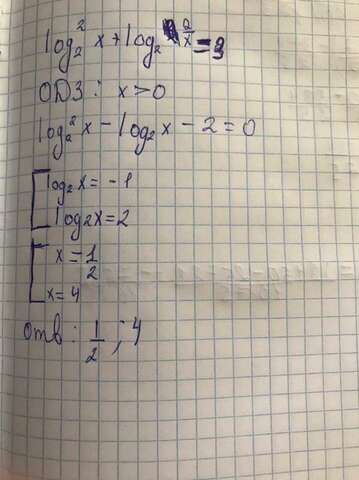 log₂² x + log₂ 2/x = 3
ОДЗ: x > 0
log₂² x - log₂ x - 2 = 0
[ log₂ x = -1
log₂ x = 2
[ x = 1/2
x = 4
Отв: 1/2 ; 4